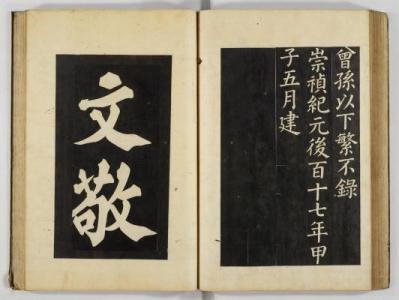 曾孫以下繁不錄
崇禎紀元後百十七年甲
子五月建
文敬